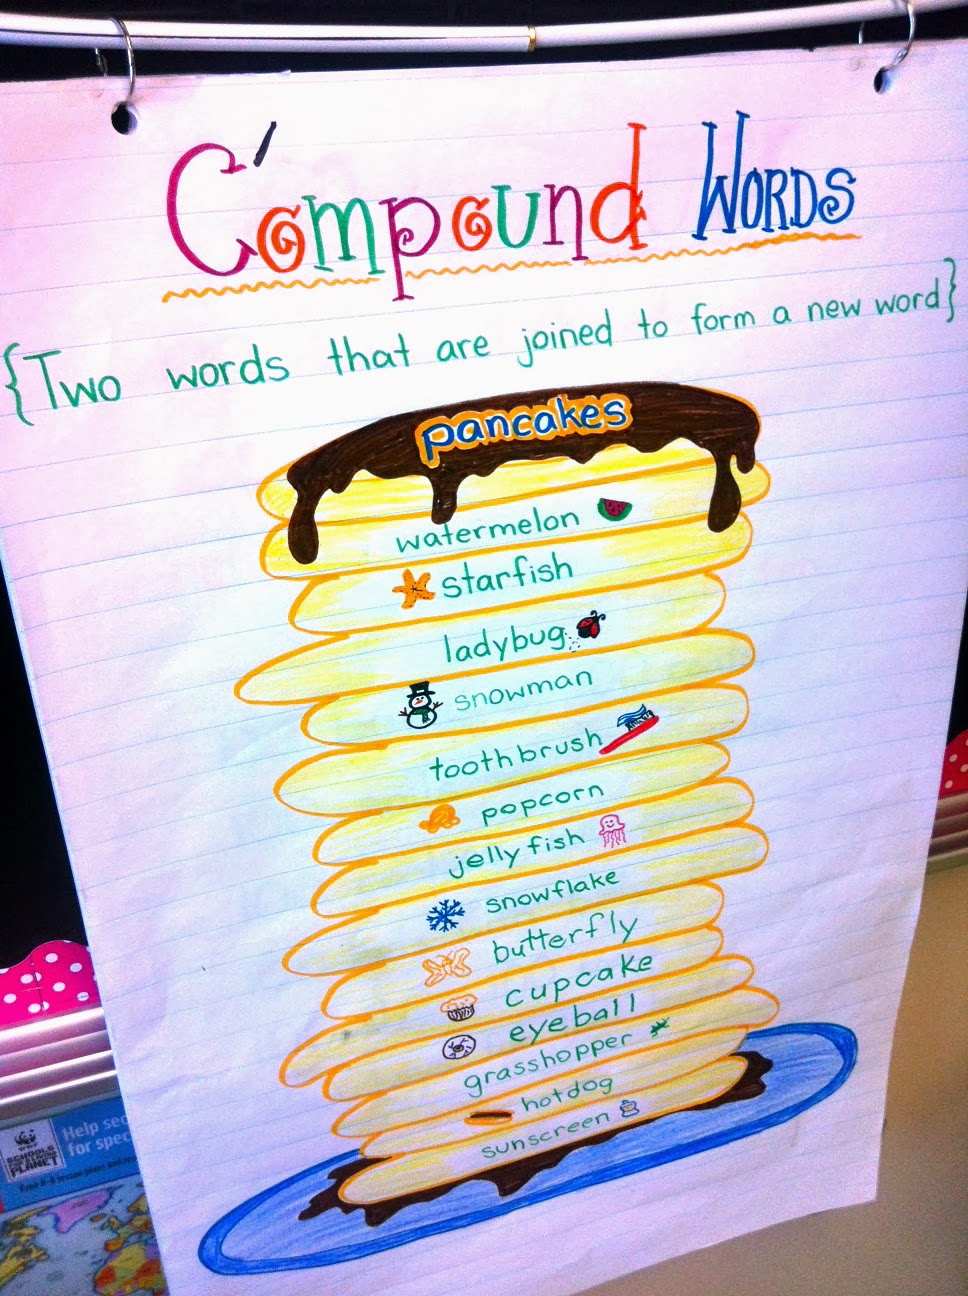 Compound WORDS
{Two words that are joined to form a new word}
pancakes
watermelon
starfish
ladybug
snowman
toothbrush
popcorn
jellyfish
snowflake
butterfly
cupcake
eyeball
grasshopper
hotdog
sunscreen
WWF
SCHOOLS
PLANET
Help sec
for spec